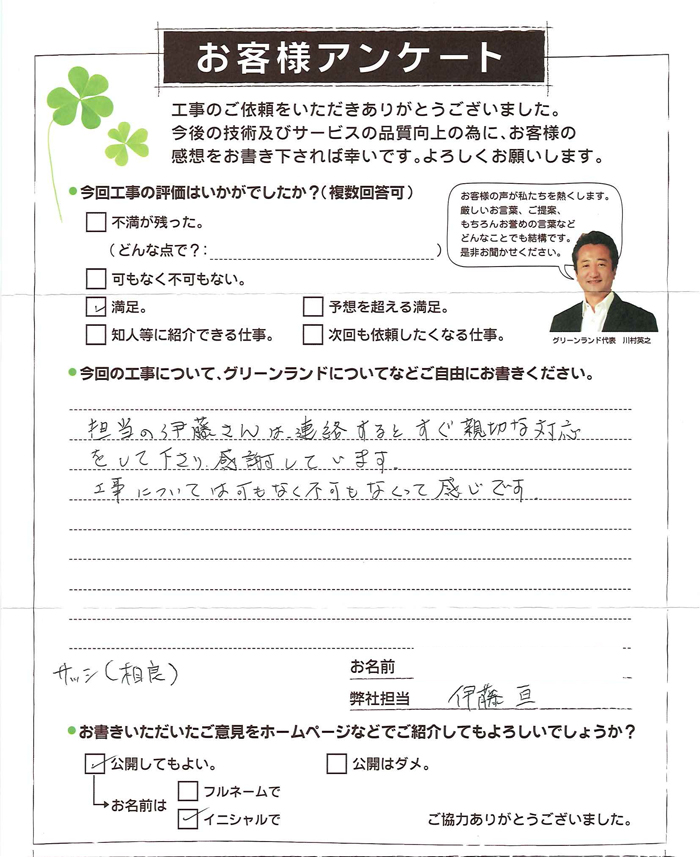 お客様アンケート
工事のご依頼をいただきありがとうございました。
今後の技術及びサービスの品質向上の為に、お客様の
感想をお書き下されば幸いです。よろしくお願いします。
●今回工事の評価はいかがでしたか？（複数回答可）
不満が残った。
（どんな点で？：　）
可もなく不可もない。
満足。
予想を超える満足。
知人等に紹介できる仕事。
次回も依頼したくなる仕事。
お客様の声が私たちを熱くします。
厳しいお言葉、ご提案、
もちろんお誉めの言葉など
どんなことでも結構です。
是非お聞かせください。
グリーンランド代表　川村英之
●今回の工事について、グリーンランドについてなどご自由にお書きください。
担当の伊藤さんは、連絡するとすぐ親切な対応
をして下さり、感謝しています。
工事については可もなく不可もなくって感じです。
サッシ（相良）
お名前
弊社担当　伊藤 亘
●お書きいただいたご意見をホームページなどでご紹介してもよろしいでしょうか？
公開してもよい。
公開はダメ。
お名前は
フルネームで
イニシャルで
ご協力ありがとうございました。